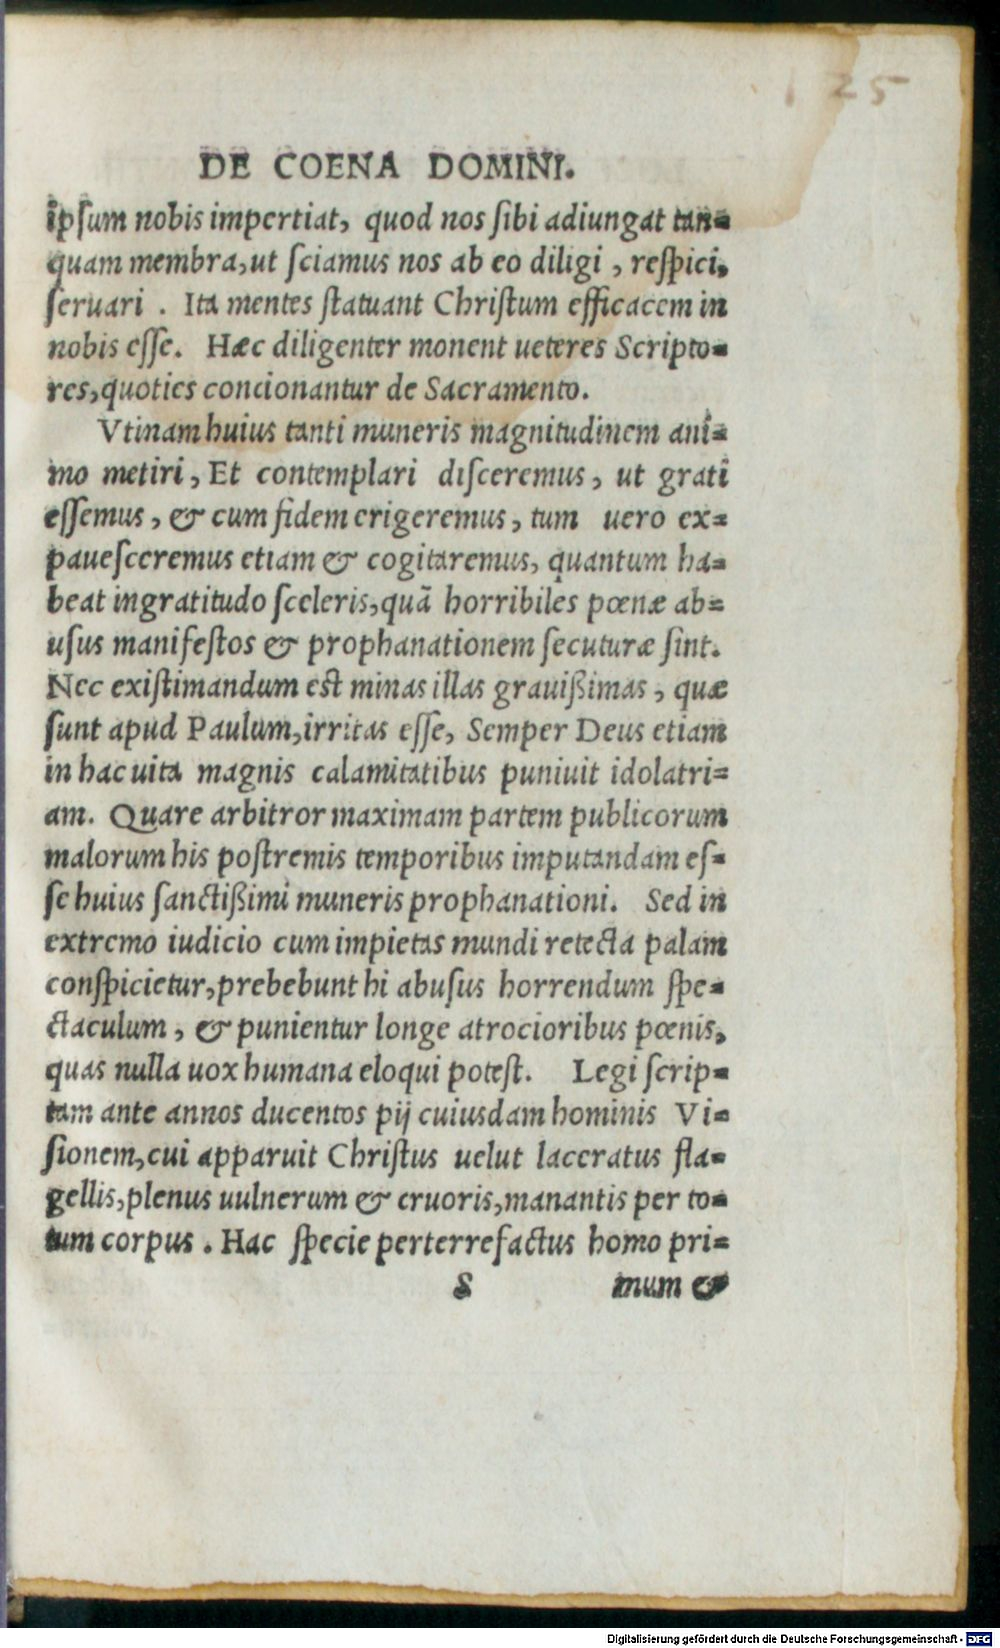 125
DE COENA DOMINI.
ipſum nobis impertiat, quod nos ſibi adiungat tan=
quam membra, ut ſciamus nos ab eo diligi, reſpici,
ſeruari. Ita mentes ſtatuant Chriſtum efficacem in
nobis eſſe. Hæc diligenter monent ueteres Scripto=
res, quoties concionantur de Sacramento.
Vtinam huius tanti muneris magnitudinem ani=
mo metiri, Et contemplari diſceremus, ut grati
eſſemus, & cum fidem erigeremus, tum uero ex=
paueſceremus etiam & cogitaremus, quantum ha=
beat ingratitudo ſceleris, quã horribiles pœnæ ab=
uſus manifeſtos & prophanationem ſecuturæ ſint.
Nec exiſtimandum eſt minas illas grauiſsimas, quæ
ſunt apud Paulum, irritas eſſe, Semper Deus etiam
in hac uita magnis calamitatibus puniuit idolatri=
am. Quare arbitror maximam partem publicorum
malorum his poſtremis temporibus imputandam eſ=
ſe huius ſanctiſsimi muneris prophanationi. Sed in
extremo iudicio cum impietas mundi retecta palam
conſpicietur, prebebunt hi abuſus horrendum ſpe=
ctaculum, & punientur longe atrocioribus pœnis,
quas nulla uox humana eloqui poteſt. Legi ſcrip=
tam ante annos ducentos pij cuiusdam hominis Vi=
ſionem, cui apparuit Chriſtus uelut laceratus fla=
gellis, plenus uulnerum & cruoris, manantis per to=
tum corpus. Hac ſpecie perterrefactus homo pri=
S mum &
Digitalisierung gefördert durch die Deutsche Forschungsgemeinschaft - DFG